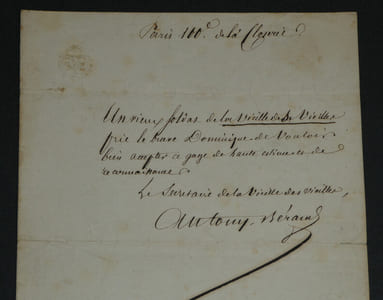 Paris 100e. de la Clos
Un vieux soldat de la Vieille des Vieilles
prie le brave Dominique de Vouloir
bien accepter ce gage de haute estime et de
reconnaissance
Le Secretaire de la Vieille des vieilles,
Antony Béraud